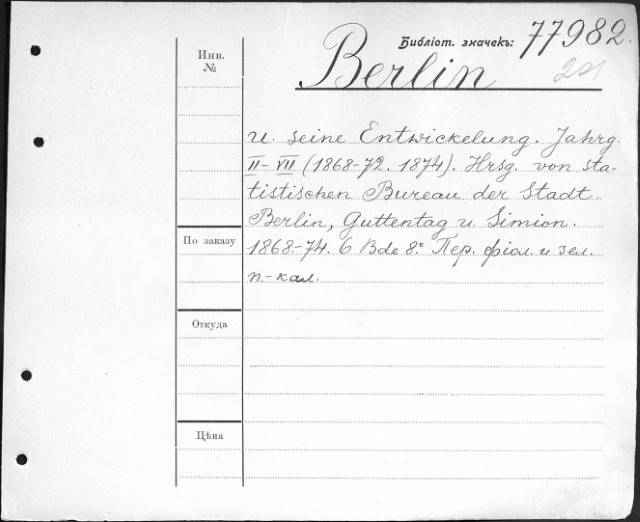 Библіот. значекъ: 77982.
Berlin
201
Инв.
№
u. seine Entwickelung. Jahrg.
II-VII (1868-72. 1874). Hrsg. von sta-
tistischen Bureau der Stadt.
Berlin, Guttentag u. Simion.
По заказу
1868-74. 6 Bde 8º Пер. фіол. и зел.
п.-кал.
Откуда
Цѣна